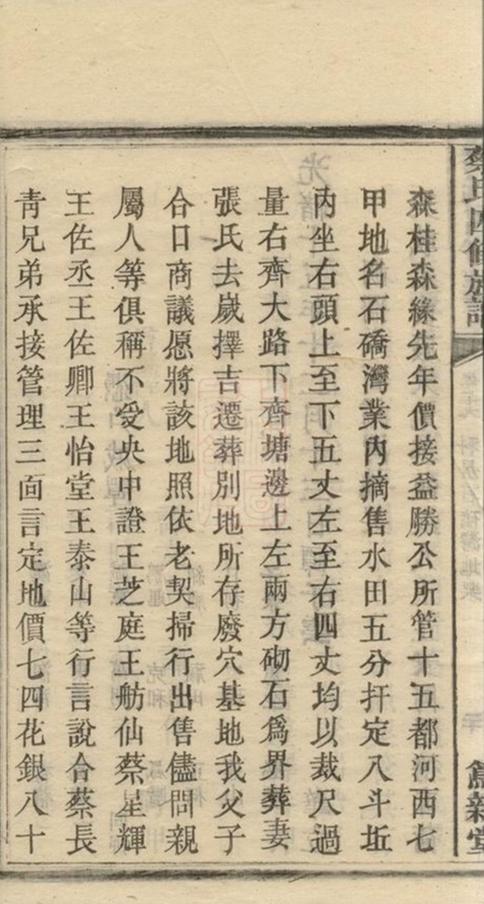 蔡氏四修族譜
篤新堂
森桂森緣先年價接益勝公所管十五都河西七
甲地名石礄灣業內摘售水田五分扞定八斗坵
內坐右頭上至下五丈左至右四丈均以裁尺過
量右齊大路下齊塘邊上左兩方砌石爲界葬妻
張氏去歲擇吉遷葬別地所存廢穴基地我父子
合口商議愿將該地照依老契掃行出售儘問親
屬人等俱稱不受央中證王芝庭王舫仙蔡星輝
王佐丞王佐卿王怡堂王泰山等行言說合蔡長
靑兄弟承接管理三面言定地價七四花銀八十